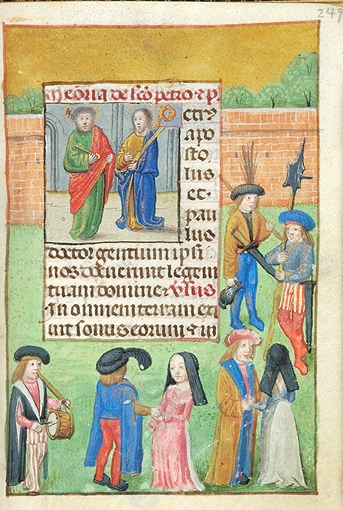 249
Memoria de sc̄o petro ⁊ p
etrꝰ
apo
stolus
et
pau
lus
doctor gentium ipsi
nos docuerunt legem
tuam domine ℣sus
In omnem terram exi
uit sonus eorum ⁊ in